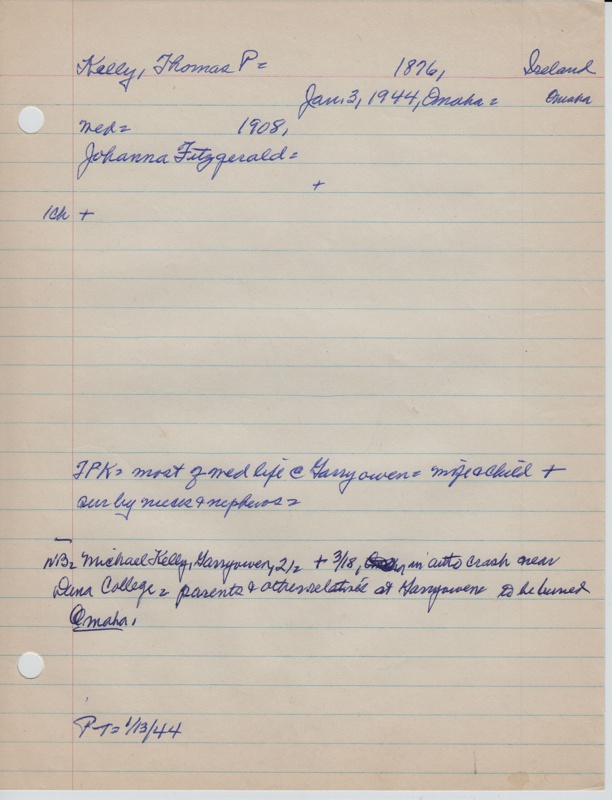 Kelly, Thomas P= 1876, Ireland
Jan. 3, 1944, Omaha = Omaha
med= 1908,
Johanna Fitzgerald=
+
1ch +
TPK= most of med life @ Garryowen= wife & child +
sur by nieces & nephews=
NB= Michael Kelly, Garryowen, 21= + 3/18, in auto crash near
Dana College= parents & other relatives at Garryowen to be buried
Omaha.
PT= 1/13/44